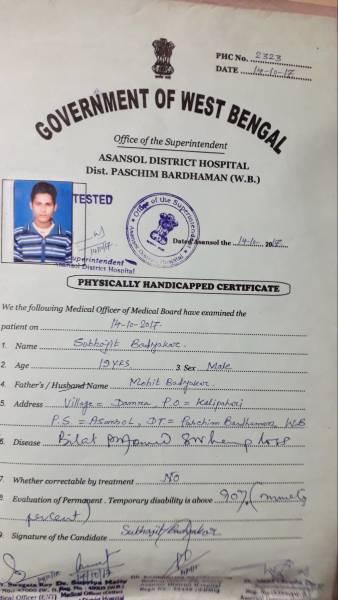 PHC No. 2323
DATE 14-10-17
GOVERNMENT OF WEST BENGAL
Office of the Superintendent
ASANSOL DISTRICT HOSPITAL
Dist. PASCHIM BARDHAMAN (W.B.)
TESTED
Office of the Superintendent
Superintendent
Asansol District Hospital
Dated Asansol the 14-10- 2017
PHYSICALLY HANDICAPPED CERTIFICATE
We the following Medical Officer of Medical Board have examined the
patient on 14-10-2017
1. Name Subhajit Badyakar
2. Age 19 YRS 3. Sex Male
4. Father's / Husband Name Mohit Badyakar
5. Address Village = Damra, P.O = Kalipahari
P.S = Asansol, DT = Paschim Bardhaman, WB
6. Disease Bilat
7. Whether correctable by treatment NO
8. Evaluation of Permanent . Temporary disability is above 90% (ninety
percent)
9. Signature of the Candidate Subhajit Badyakar